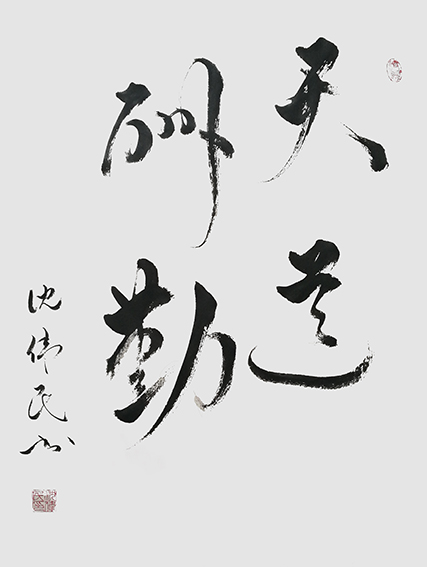 天道
酬勤
沈伟民书